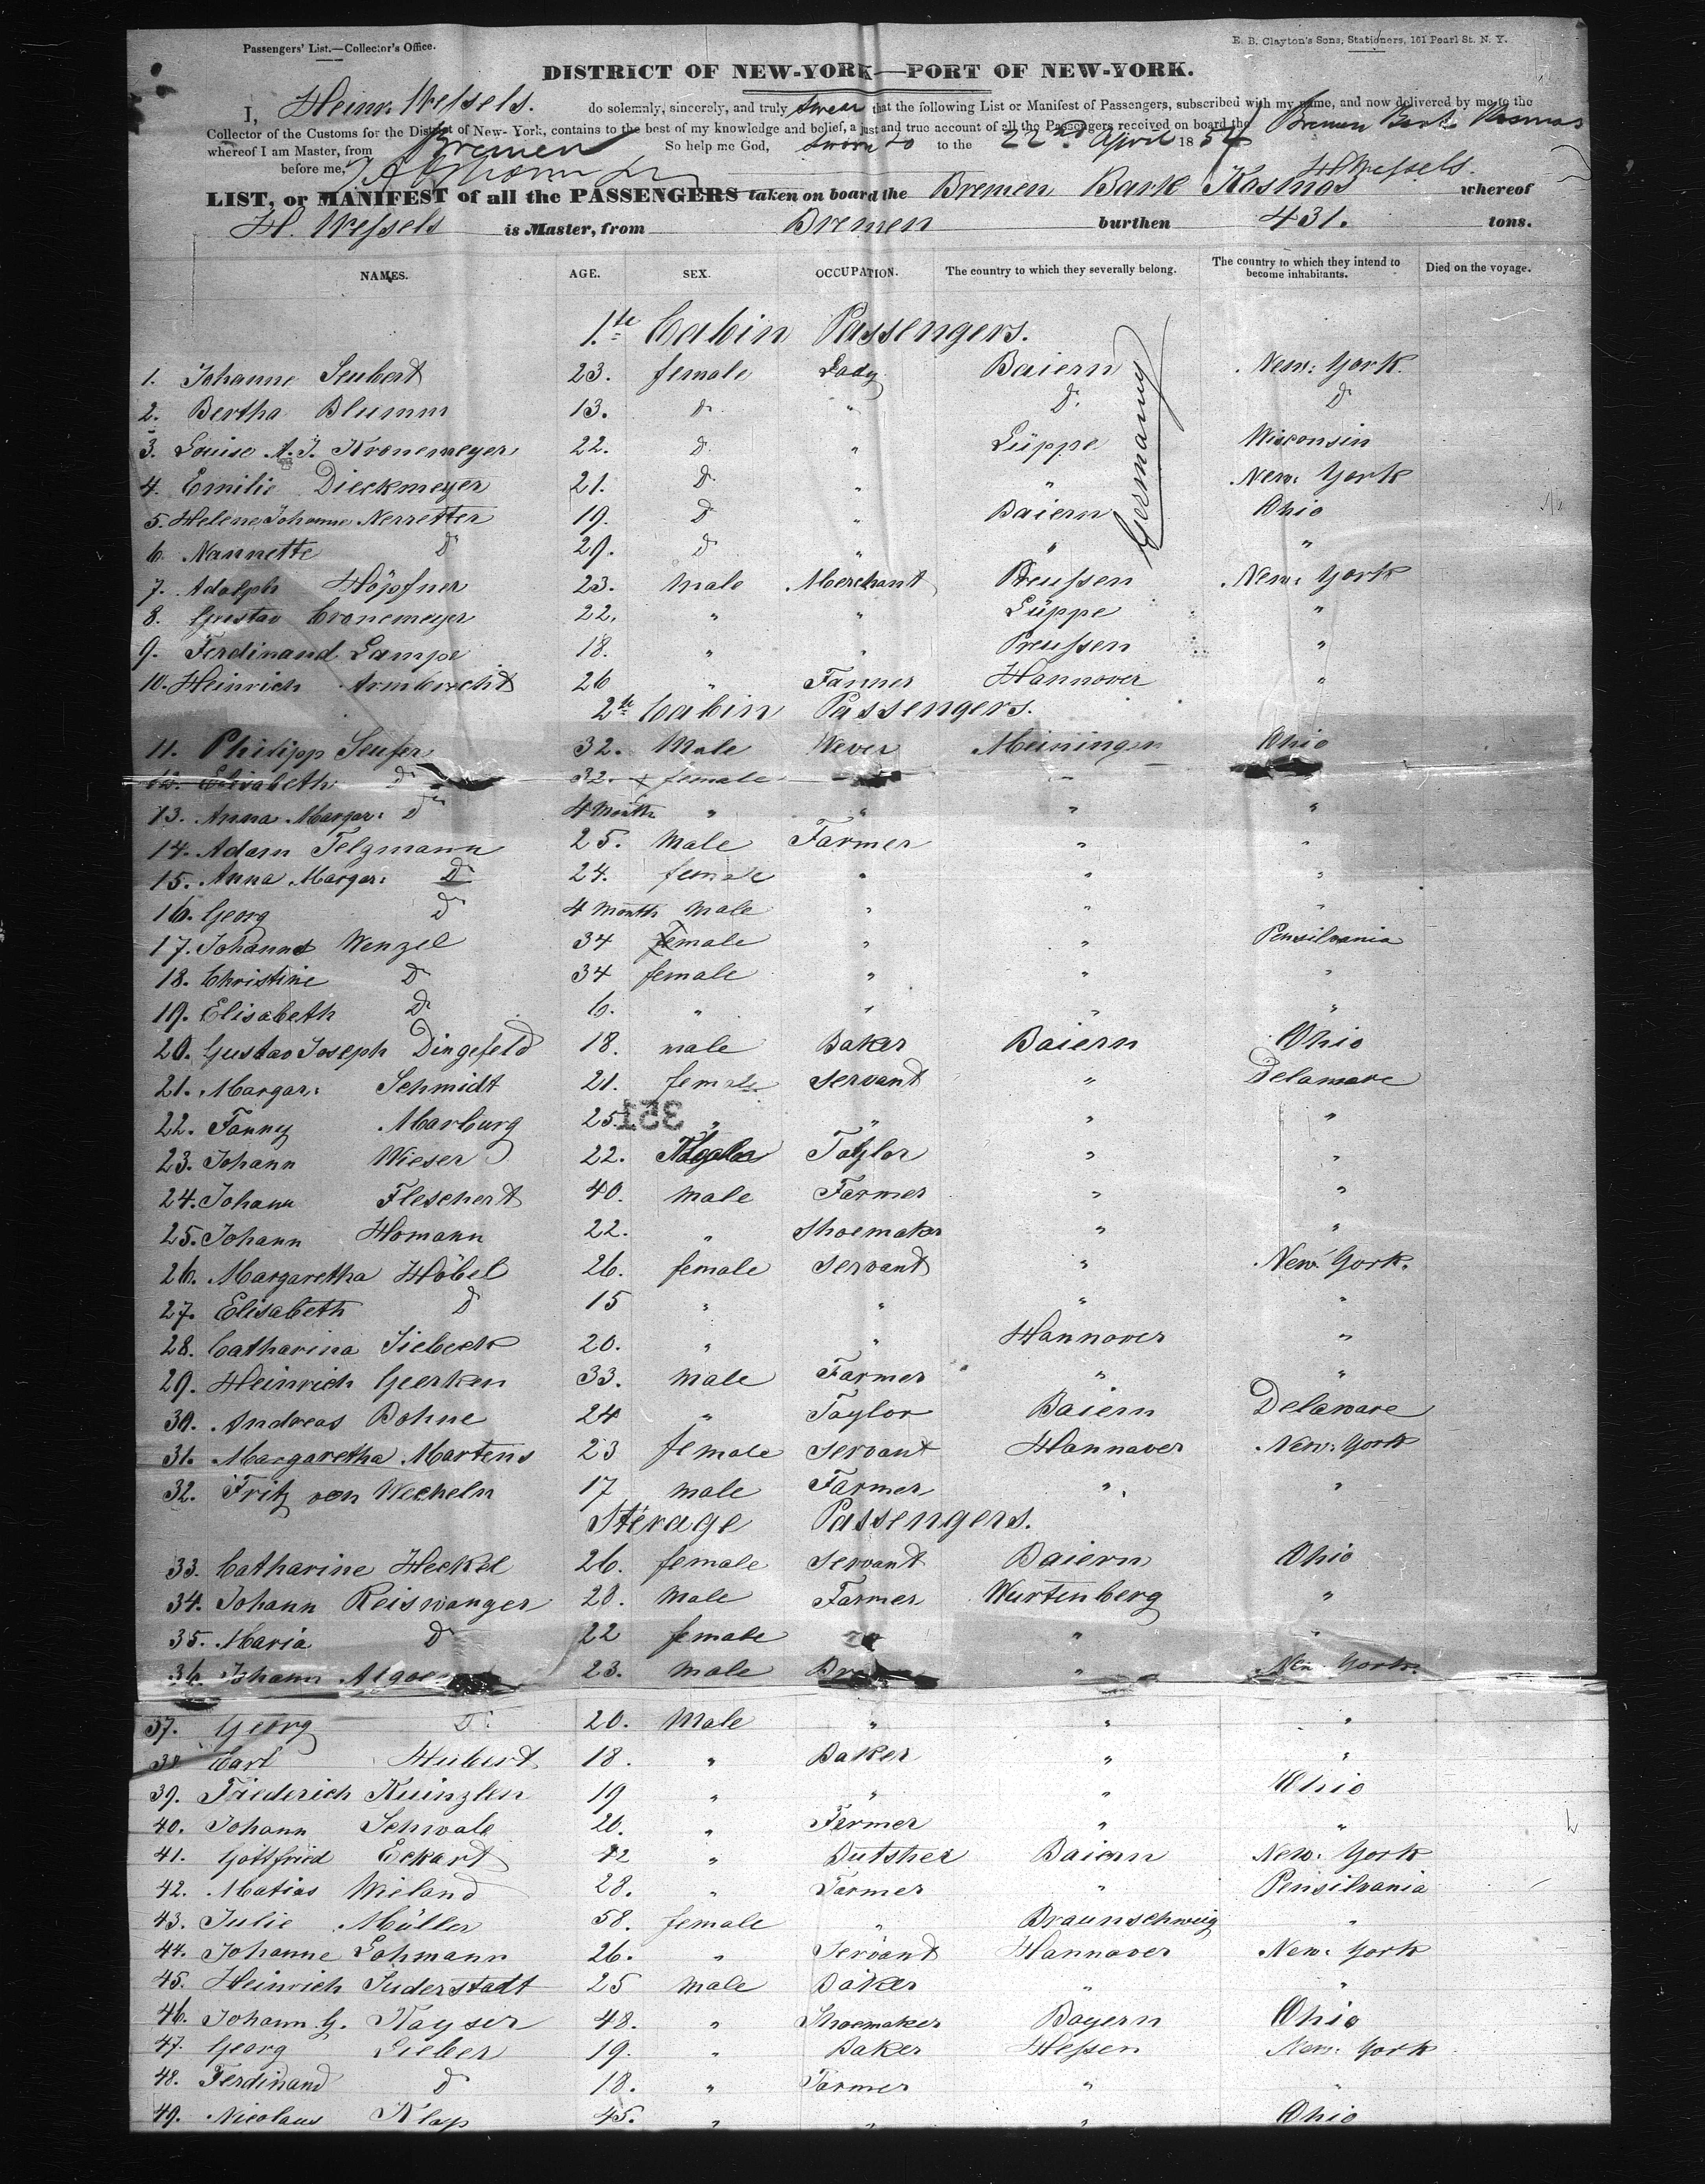 Passengers' List.—Collector's Office.
E. B. Clayton's Sons, Stationers, 161 Pearl St. N. Y.
DISTRICT OF NEW-YORK—PORT OF NEW-YORK.
I, Heinr. Wessels. do solemnly, sincerely, and truly swear that the following List or Manifest of Passengers, subscribed with my name, and now delivered by me to the
Collector of the Customs for the District of New-York, contains to the best of my knowledge and belief, a just and true account of all the Passengers received on board the Bremen Bark Kosmos
whereof I am Master, from Bremen So help me God, sworn to to the 22nd April 1854
before me, H Wessels.
LIST, or MANIFEST of all the PASSENGERS taken on board the Bremen Bark Kosmos whereof
H. Wessels is Master, from Bremen burthen 431. tons.
NAMES. AGE. SEX. OCCUPATION. The country to which they severally belong. The country to which they intend to become inhabitants. Died on the voyage.
1.te Cabin Passengers.
Germany
1. Johanne Seubert 23. female Lady Baiern New: York.
2. Bertha Blumm 13. do " Do. Do
3. Louise A. J. Kronemeyer 22. do " Lüppe Wisconsin
4. Emilie Dieckmeyer 21. Do " " New: York
5. Helene Johanne Nerretter 19. Do " Baiern Ohio
6. Nannette Do 29. Do " " "
7. Adolph Höpfner 23. Male Merchant Preussen New: York
8. Gustav Cronemeyer 22. " " Lüppe "
9. Ferdinand Lampe 18. " " Preussen "
10. Heinrich Armbrecht 26 " Farmer Hannover "
2te Cabin Passengers.
11. Philipp Seufer 32. Male Wever Meiningen Ohio
12. Elisabeth Do 32. x female
13. Anna Margar: Do 4 Month " " " "
14. Adam Felzmann 25. Male Farmer " "
15. Anna Margar: Do 24. female " " "
16. Georg Do 4 Month Male " " "
17. Johannes Wenzel 34 female " " Pensilvania
18. Christine Do 34 female " " "
19. Elisabeth Do 6. " " " "
20. Gustav Joseph Dingefeld 18. male Baker Baiern Ohio
21. Margar: Schmidt 21. female Servant " Delaware
351
22. Fanny Marburg 25. " " " "
23. Johann Wieser 22. Taylor " "
24. Johann Fleschert 40. Male Farmer " "
25. Johann Homann 22. " Shoemaker " "
26. Margaretha Höbel 26. female Servant " New York.
27. Elisabeth Do 15 " " " "
28. Catharina Siebeck 20. " " Hannover "
29. Heinrich Geerken 33. Male Farmer " "
30. Andreas Bohne 24 " Taylor Baiern Delaware
31. Margaretha Martens 23 female Servant Hannover New: York
32. Fritz von Wecheln 17 male Farmer " "
Sterage Passengers.
33. Catharine Heckel 26. female Servant Baiern Ohio
34. Johann Reiswanger 20. Male Farmer Wurtenberg "
35. Maria Do 22 female " "
36. Johann 23. Male " New York.
37. Georg Do. 20. Male " " "
38 Carl Hubert 18. " Baker " "
39. Friederich Kuinzlen 19 " " " Ohio
40. Johann Schwale 20. " Farmer " "
41. Gottfried Eckart 42 " Butsher Baiern New: York
42. Matias Wieland 28. " Farmer " Pensilvania
43. Julie Müller 58. female " Braunschweig "
44. Johanne Lohmann 26. " Servant Hannover New: York
45. Heinrich Suderstadt 25 Male Baker " "
46. Johann G. Kayser 48. " Shoemaker Bayern Ohio
47. Georg Lieber 19. " Baker Hessen New: York
48. Ferdinand Do 18. " Farmer " "
49. Nicolaus Klap 45. " " " Ohio